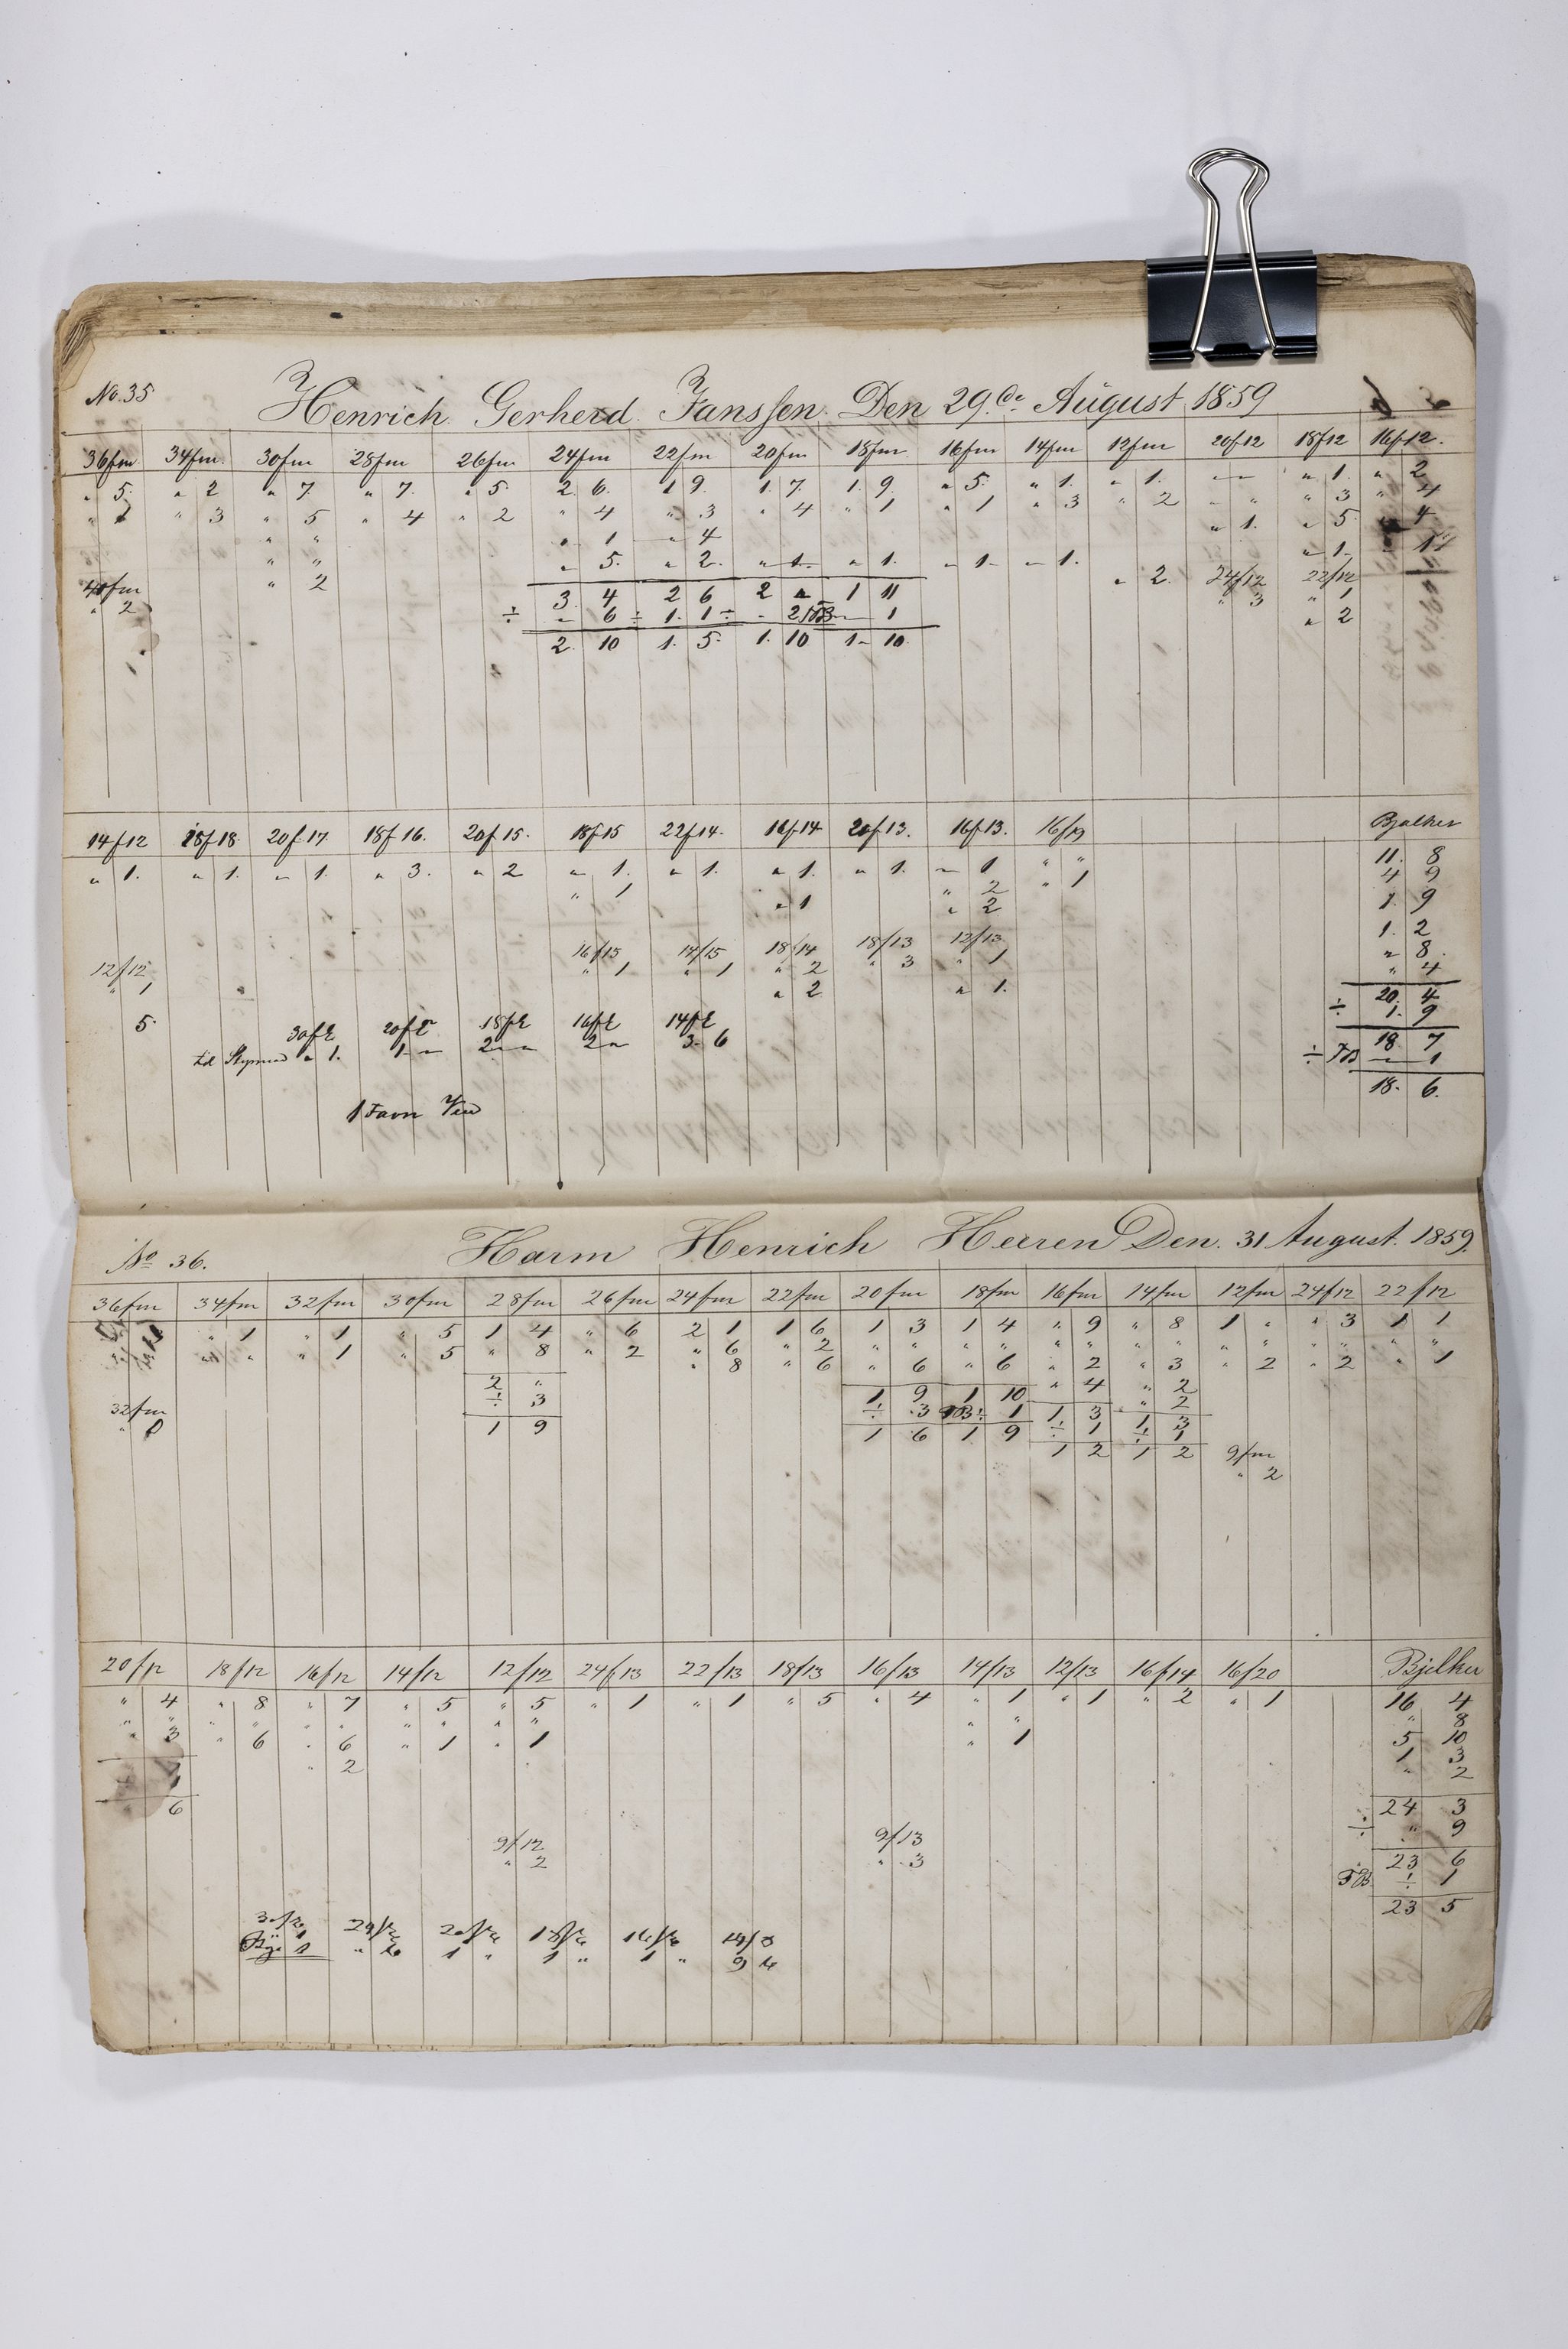 No. 35
Henrich Gerherd Janssen. Den 29de August 1859
36fm 34fm. 30fm 28fm 26fm 24fm 22fm 20fm 18fm 16fm 14fm 12fm 20f12 18f12 16f12.
" 5. " 2 " 7. " 7. " 5. 2. 6. 1 9. 1. 7. 1. 9. " 5. " 1. " 1. " " " 1. " 2
" " 3 " 5 " 4 " 2 " 4 " 3 " 4 " 1 " 1 " 3 " 2 " " " 3 " 4
" " " 1 " 4 " 1. " 5 4
" " " 5. " 2. " 1. " 1. " 1. " 1. " 1.
fm " 2 3. 4 2 6 2 " 1 11 " 2. 24/12 22/12
" 2 ÷ " 6 ÷ 1. 1 ÷ " 2 " 1 " 3 " 1
2. 10 1. 5. 1. 10 1. 10. " 2
14f12 18f18 20f17 18f16. 20f15. 18f15 22f14. 14 20f13. 16f13. 16/19 Bjelker
" 1. " 1. " 1. " 3. " 2 " 1. " 1. " 1. " 1. " 1 " " 11. 8
" 1 " 1 " 2 " 1 4 9
" 2 1. 9
1. 2
16f15 14/15 18/14 18/13 12/13 " 8.
12f12 " 1 " 1 " 2 " 3 " 1 " 4
" 1 " 2 " 1. 20. 4
÷ 1. 9
5. 30f 20f 18f 16f 14f 18 7
" 1. 1. " 2 " 2 " 3. 6 ÷ " 1
18. 6.
1 Favn Ved
No 36.
Harm Henrich Heeren Den. 31 August. 1859.
36fm 34fm 32fm 30fm 28fm 26fm 24fm 22fm 20fm 18fm 16fm 14fm 12fm 24f12 22f12
" 1 " 1 " 5 1 4 " 6 2 1 1 6 1 3 1 4 " 9 " 8 1 " " 3 1 1
" " " 1 " 5 " 8 " 2 " 6 " 2 " " " " " " " " " " " " " "
" 8 " 6 " 6 " 6 " 2 " 3 " 2 " 2 " 1
2 " " 4 " 2
÷ 3 1 9 1 10 " 2
32fm ÷ 3 ÷ 1 1 3 1 3
1 9 1 6 1 9 ÷ 1 ÷ 1
1 2 1 2 9fm
" 2
20/12 18/12 16/12 14/12 12/12 24/13 22/13 18/13 16/13 14/13 12/13 16f14 16/20 Bjelker
" 4 " 8 " 7 " 5 " 5 " 1 " 1 " 5 " 4 " 1 " 1 " 2 " 1 16 4
" " " " " " " " " " " " " 8
" 3 " 6 " 6 " 1 " 1 " 1 5 10
" 2 1 3
" 2
6 24 3
9/12 9/13 ÷ " 9
" 2 " 3 23 6
÷ 1
23 5